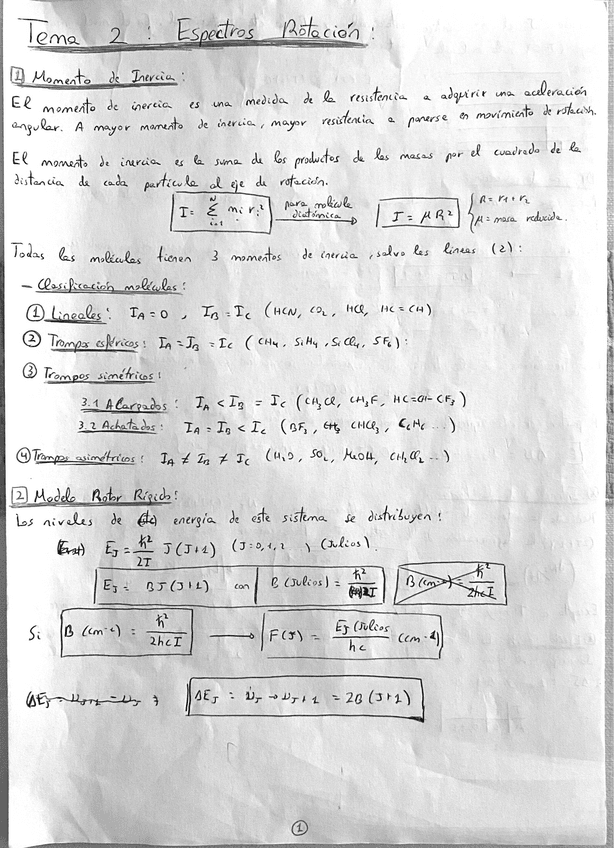 Tema 2 : Espectros Rotación :
1 Momento de Inercia :
El momento de inercia es una medida de la resistencia a adquirir una aceleración
angular. A mayor momento de inercia, mayor resistencia a ponerse en movimiento de rotación.
El momento de inercia es la suma de los productos de las masas por el cuadrado de la
distancia de cada partícula al eje de rotación.
I = Σ_{i=1}^{N} m_i r_i² para molécula diatómica → I = μR² { R = r₁ + r₂
μ = masa reducida.
Todas las moléculas tienen 3 momentos de inercia, salvo las líneas (2) :
- Clasificación moléculas :
① Lineales : I_A = 0 , I_B = I_C (HCN, CO₂, HCl, HC = CH)
② Trompos esféricos : I_A = I_B = I_C (CH₄, SiH₄, SiCl₄, SF₆) :
③ Trompos simétricos :
3.1 Alargados : I_A < I_B = I_C (CH₃Cl, CH₃F, HC=CH-CF₃)
3.2 Achatados : I_A = I_B < I_C (BF₃, CHCl₃, ...)
④ Trompos asimétricos : I_A ≠ I_B ≠ I_C (H₂O, SO₂, MeOH, CH₂Cl₂ ...)
2 Modelo Rotor Rígido :
Los niveles de energía de este sistema se distribuyen :
E_J = ħ²/2I J(J+1) (J=0,1,2 ) (Julios).
E_J = BJ(J+1) con B (Julios) = ħ²/2I B (cm-1) = ħ²/2hcI
Si B (cm-1) = ħ²/2hcI → F(J) = E_J (Julios)/hc (cm-1)
ΔE_J = ν_{J+1} - ν_J ΔE_J = ν_J → ν_{J+1} = 2B (J+1)
①